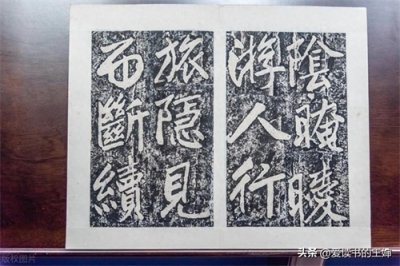 陰晻曖
游人行
旅隱見
而斷續
版权图片
头条 @爱读书的王婶